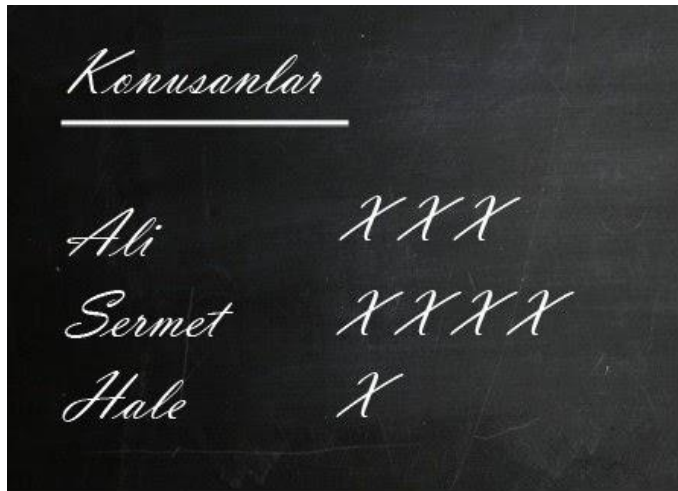 Konusanlar
Ali XXX
Sermet XXXX
Hale X